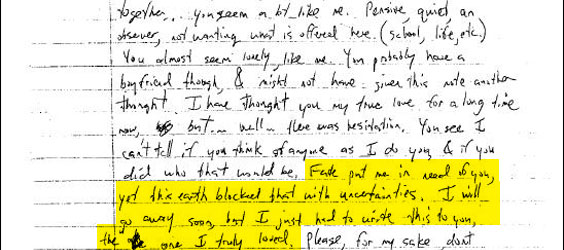 together... you seem a bit like me. Pensive, quiet, an
observer, not wanting what is offered here (school, life, etc.)
You almost seem lonely, like me. You probably have a
boyfriend though, & might not have given this note another
thought. I have thought you my true love for a long time
now, but... well... there was hesitation. You see I
can't tell if you think of anyone as I do you, & if you
did who that would be. Fate put me in need of you,
yet this earth blocked that with uncertainties. I will
go away soon, but I just had to write this to you,
the one I truly loved. Please, for my sake, dont